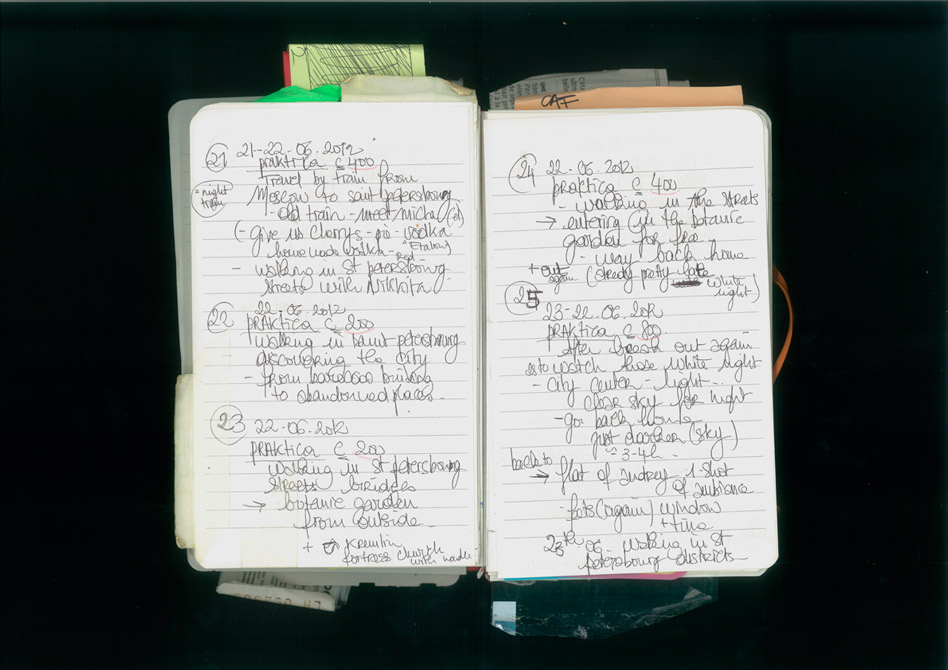 CAF
21 21-22.06.2012
praktica C 400
= night train
Travel by train from
Moscow to saint petersbourg
- Old train - meet michael(a)
(- give us cherrys - pie - vodka
home made vodka - Red
- walking in St petersbourg
streets with Nikhita
22 22.06.2012
PRAKtica C 200
walking in saint petersbourg
discovering the city
- from building
to abandonned places -
23 22.06.2012
PRAKtica C 200
walking in St petersbourg
streets bridges
→ botanic garden
from outside
+ Kremlin
fortress church
with
24 22.06.2012
practica C 400
- walking in the streets
→ entering in the botanic
garden for free
- way back home
+ out again (already pretty late
white night)
25
23-22.06.2012
PRAKtica C 800
After out again
to watch those white night
- City center - light --
clear sky for night
- go back home
just darker (sky)
≈ 3-4h
back to
→ flat of Audrey 1 shot
of ambiance
(again) window
+ tina
23th 06 - walking in St
petersbourg districts -